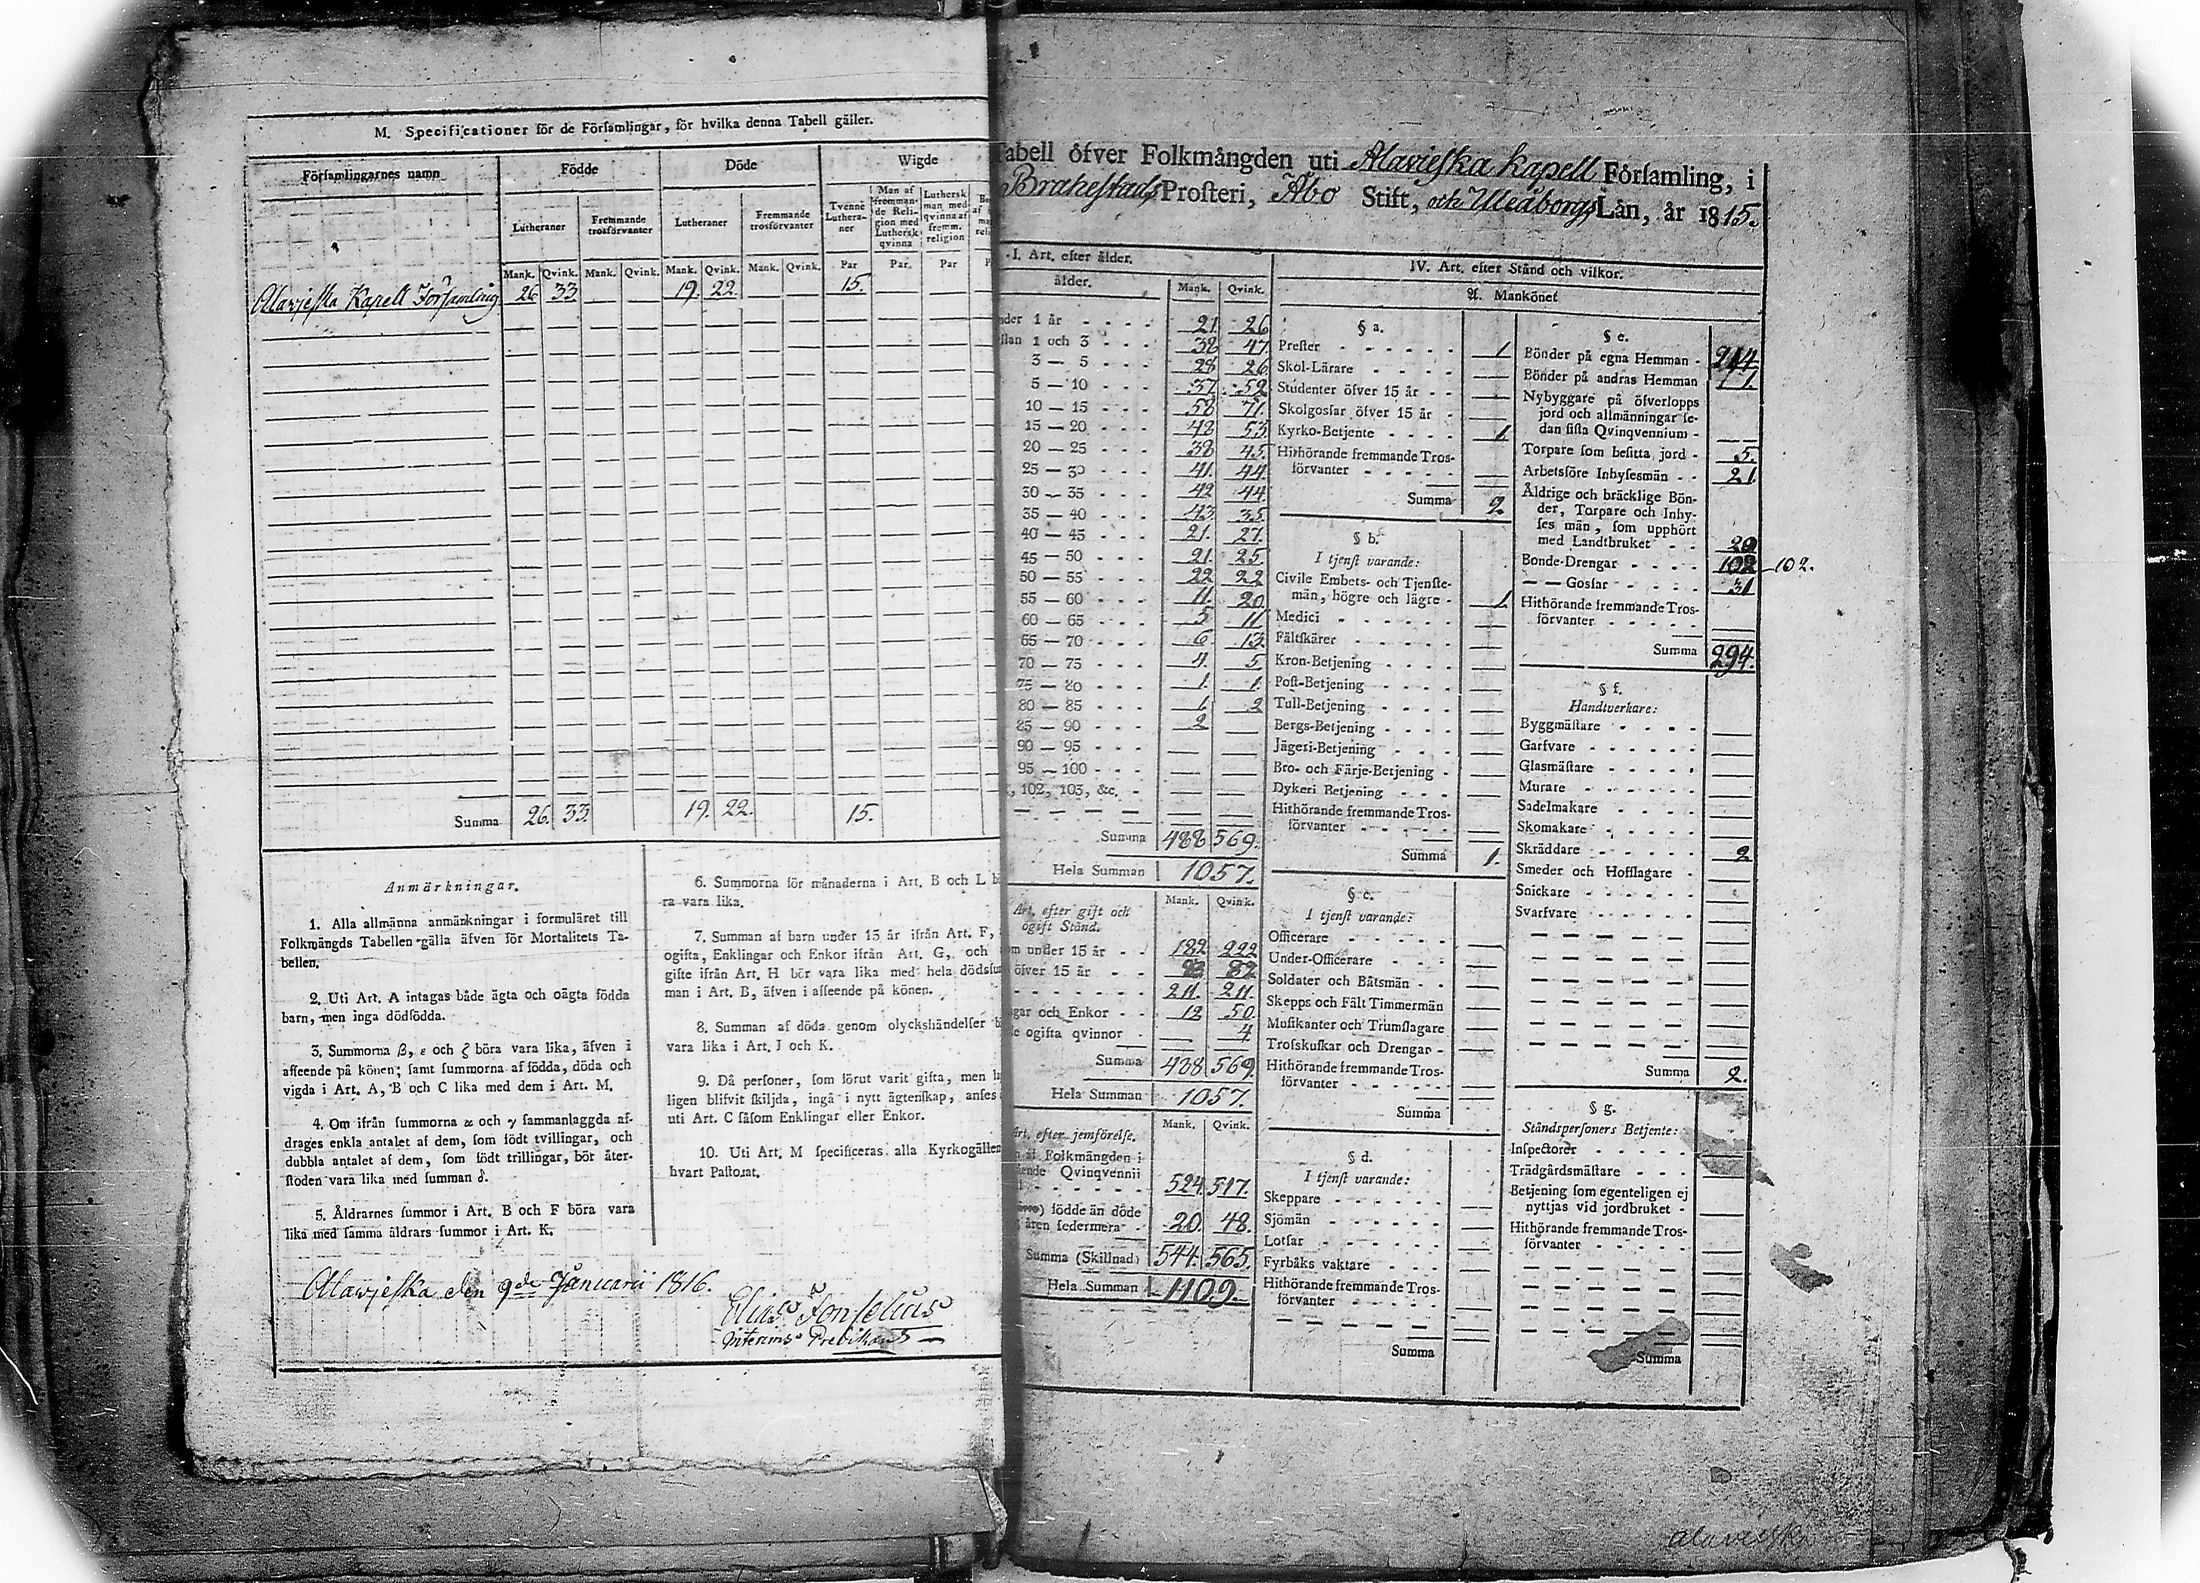 M. Specificationer för de Församlingar, för hvilka denna Tabell gäller.
Församlingarnes namn
Födde
Döde
Wigde
Lutheraner
Fremmande trosförvanter
Lutheraner
Fremmande trosförvanter
Tvenne Lutheraner
Man af fremmande Religion med Luthersk qvinna
Luthersk man med qvinna af fremm. religion
Mank. Qvink. Mank. Qvink. Mank. Qvink. Mank. Qvink. Par Par. Par
Alawjeska Kapell Församling 26 33 19. 22. 15.
Summa 26. 33. 19. 22. 15.
Anmärkningar.
1. Alla allmänna anmärkningar i formuläret till
Folkmängds Tabellen gälla äfven för Mortalitets Ta-
bellen.
2. Uti Art. A intagas både ägta och oägta födda
barn, men inga dödfödda.
3. Summorna β, ε och ζ böra vara lika, äfven i
afseende på könen; samt summorna af födda, döda och
vigda i Art. A, B och C lika med dem i Art. M.
4. Om ifrån summorna α och γ sammanlaggda af-
drages enkla antalet af dem, som födt tvillingar, och
dubbla antalet af dem, som födt trillingar, bör åter-
stoden vara lika med summan δ.
5. Åldrarnes summor i Art. B och F böra vara
lika med samma åldrars summor i Art. K.
6. Summorna för månaderna i Art. B och L bö
ra vara lika.
7. Summan af barn under 15 år ifrån Art. F,
ogifta, Enklingar och Enkor ifrån Art. G, och
gifte ifrån Art. H bör vara lika med hela dödssum
man i Art. B, äfven i afseende på könen.
8. Summan af döda genom olyckshändelser b
vara lika i Art. J och K.
9. Då personer, som förut varit gifta, men la
ligen blifvit skiljda, ingå i nytt ägtenskap, anses
uti Art. C såsom Enklingar eller Enkor.
10. Uti Art. M specificeras alla Kyrkogällen
hvart Pastorat.
Alawjeska den 9de Januarii 1816.
Elias
Interims Predikant
Tabell öfver Folkmängden uti Alavieska kapell Församling, i
Brahestads Prosteri, Åbo Stift, och Uleåborgs Län, år 1815.
I. Art. efter ålder.
ålder. Mank. Qvink.
nder 1 år 21. 26
llan 1 och 3 38 47.
3 — 5 28 26
5 — 10 37. 52
10 — 15 58 71.
15 — 20 48 53
20 — 25 38 45.
25 — 30 41. 44
30 — 35 42 44
35 — 40 43 35.
40 — 45 21. 27.
45 — 50 21. 25.
50 — 55 22 22
55 — 60 11. 20.
60 — 65 5 11
65 — 70 6 13
70 — 75 4 5
75 — 80 1. 1.
80 — 85 1. 2
85 — 90 2
90 — 95
95 — 100
, 102, 103, &c.
Summa 488 569.
Hela Summan 1057.
Art. efter gift och ogift Stånd. Mank. Qvink.
rn under 15 år 182 222
öfver 15 år 82
211. 211.
gar och Enkor 12 50
e ogifta qvinnor 4
Summa 488 569.
Hela Summan 1057.
Art. efter jemförelse. Mank. Qvink.
af Folkmängden i
ende Qvinqvennii 524 517.
födde än döde
åren sedermera 20. 48.
Summa (Skillnad) 544. 565.
Hela Summan 1109.
IV. Art. efter Stånd och vilkor.
A. Mankönet
§ a.
Prester 1
Skol-Lärare
Studenter öfver 15 år
Skolgossar öfver 15 år
Kyrko-Betjente 1.
Hithörande fremmande Tros-
förvanter
Summa 2.
§ b.
I tjenst varande:
Civile Embets- och Tjenste-
män, högre och lägre 1.
Medici
Fältskärer
Kron-Betjening
Post-Betjening
Tull-Betjening
Bergs-Betjening
Jägeri-Betjening
Bro- och Färje-Betjening
Dykeri Betjening
Hithörande fremmande Tros-
förvanter
Summa 1.
§ c.
I tjenst varande:
Officerare
Under-Officerare
Soldater och Båtsmän
Skepps och Fält Timmermän
Musikanter och Trumslagare
Trosskuskar och Drengar
Hithörande fremmande Tros-
förvanter
Summa
§ d.
I tjenst varande:
Skeppare
Sjömän
Lotsar
Fyrbåks vaktare
Hithörande fremmande Tros-
förvanter
Summa
§ e.
Bönder på egna Hemman
Bönder på andras Hemman 1.
Nybyggare på öfverlopps
jord och allmänningar se-
dan sista Qvinqvennium
Torpare som besitta jord 5.
Arbetsföre Inhysesmän 21.
Åldrige och bräcklige Bön-
der, Torpare och Inhy-
ses män, som upphört
med Landtbruket 20
Bonde-Drengar 102 102.
— — Gossar 31
Hithörande fremmande Tros-
förvanter
Summa 294.
§ f.
Handtverkare:
Byggmästare
Garfvare
Glasmästare
Murare
Sadelmakare
Skomakare
Skräddare 2
Smeder och Hofslagare
Snickare
Svarfvare
Summa 2.
§ g.
Ståndspersoners Betjente:
Inspectorer
Trädgårdsmästare
Betjening som egenteligen ej
nyttjas vid jordbruket
Hithörande fremmande Tros-
förvanter
Summa
Alavieska